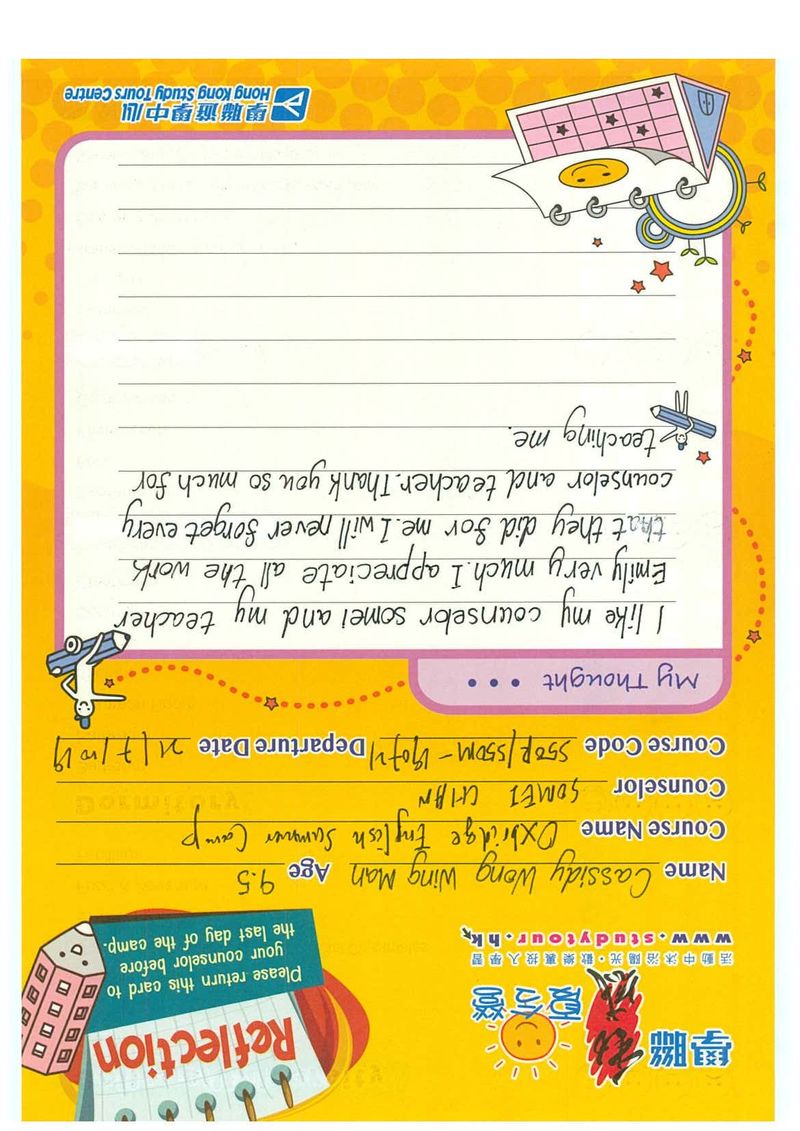 學聯
夏令營
活動中沐浴陽光•歡樂裏投入學習
www.studytour.hk
Reflection
Please return this card to
your counselor before
the last day of the camp.
Name Cassidy Wong Wing Man Age 9.5
Course Name Oxbridge English Summer Camp
Counselor SOMEI CHAN
Course Code Departure Date
My Thought •••
I like my counselor somei and my teacher
Emily very much. I appreciate all the work
that they did for me. I will never forget every
counselor and teacher. Thank you so much for
teaching me.
學聯遊學中心
Hong Kong Study Tours Centre